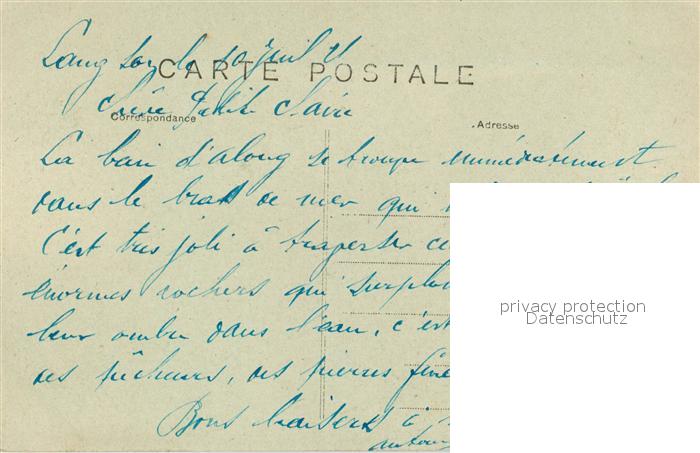 Lang Son le 10 Juil 21
CARTE POSTALE
Chère Petite Claire
Correspondance
Adresse
La baie d'along se trouve immédiatement
dans le bras de mer qui
C'est très joli à traverser ce
énormes rochers qui surplom
leur ombre dans l'eau, c'est
des pêcheurs, des pierres fine
Bons baisers à
privacy protection
Datenschutz